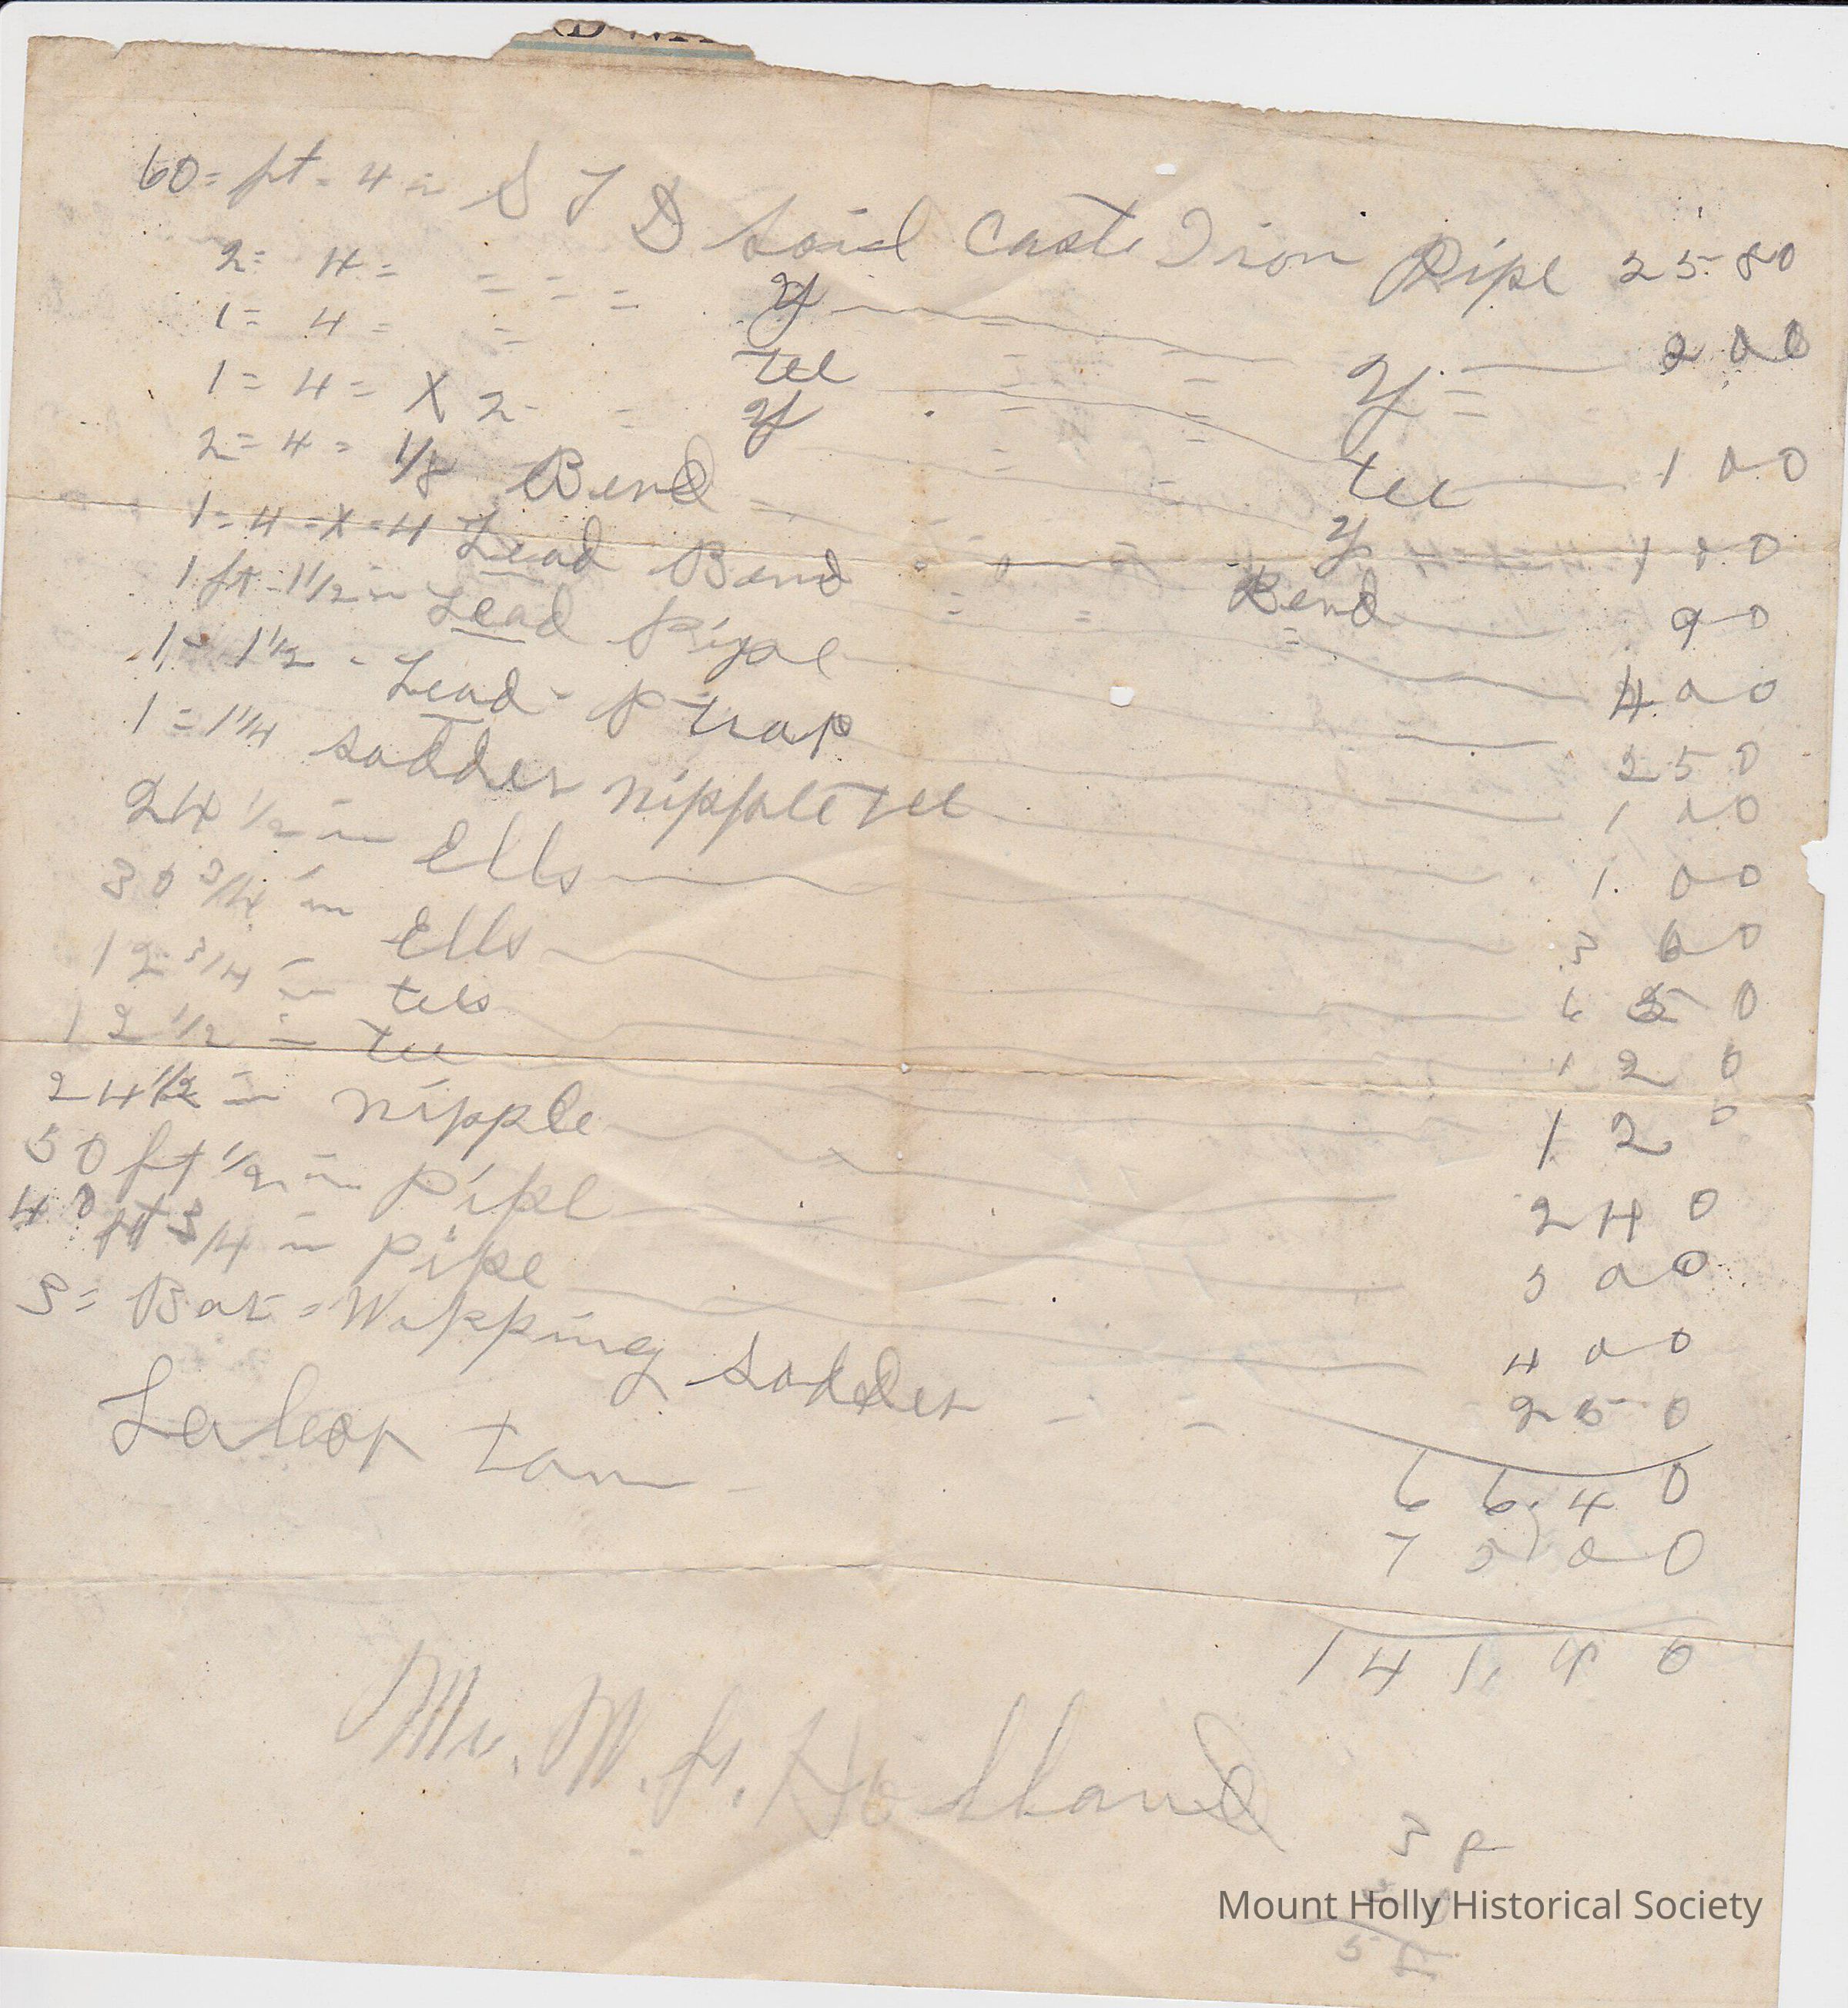 60 = ft - 4 in S T D Soid Caste Iron Pipe 25 80
2 = 4 = = = = Y Y = 2 00
1 = 4 = = tee tee 1 00
1 = 4 = X 2 = Y Y 1 00
2 = 4 = 1/8 Bend Bend 90
1 = 4 = X = 4 Lead Bend = = = 4 00
1 ft - 1 1/2 in Lead Pipe 2 50
1 = 1 1/2 - Lead - P trap 1 00
1 = 1 1/4 sodder nipple tee 1.00
24 1/2 in Ells 3 60
30 3/4 in Ells
12 3/4 in tees 1 20
12 1/2 in tee 1 20
24 1/2 in nipple 2 40
50 ft 1/2 in pipe 5 00
40 ft 3/4 in pipe 4 00
5 = Bar = Wipping sodder - - 2 50
66.40
75 00
141.40
Mr. M. Holland
Mount Holly Historical Society